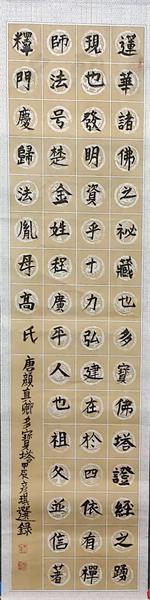 蓮華諸佛之祕藏也多寶佛塔證經之踴
現也發明資乎十力弘建在於四依有禪
師法号楚金姓程廣平人也祖父並信著
釋門慶歸法胤母高氏
唐顏真卿多寶塔甲辰選錄